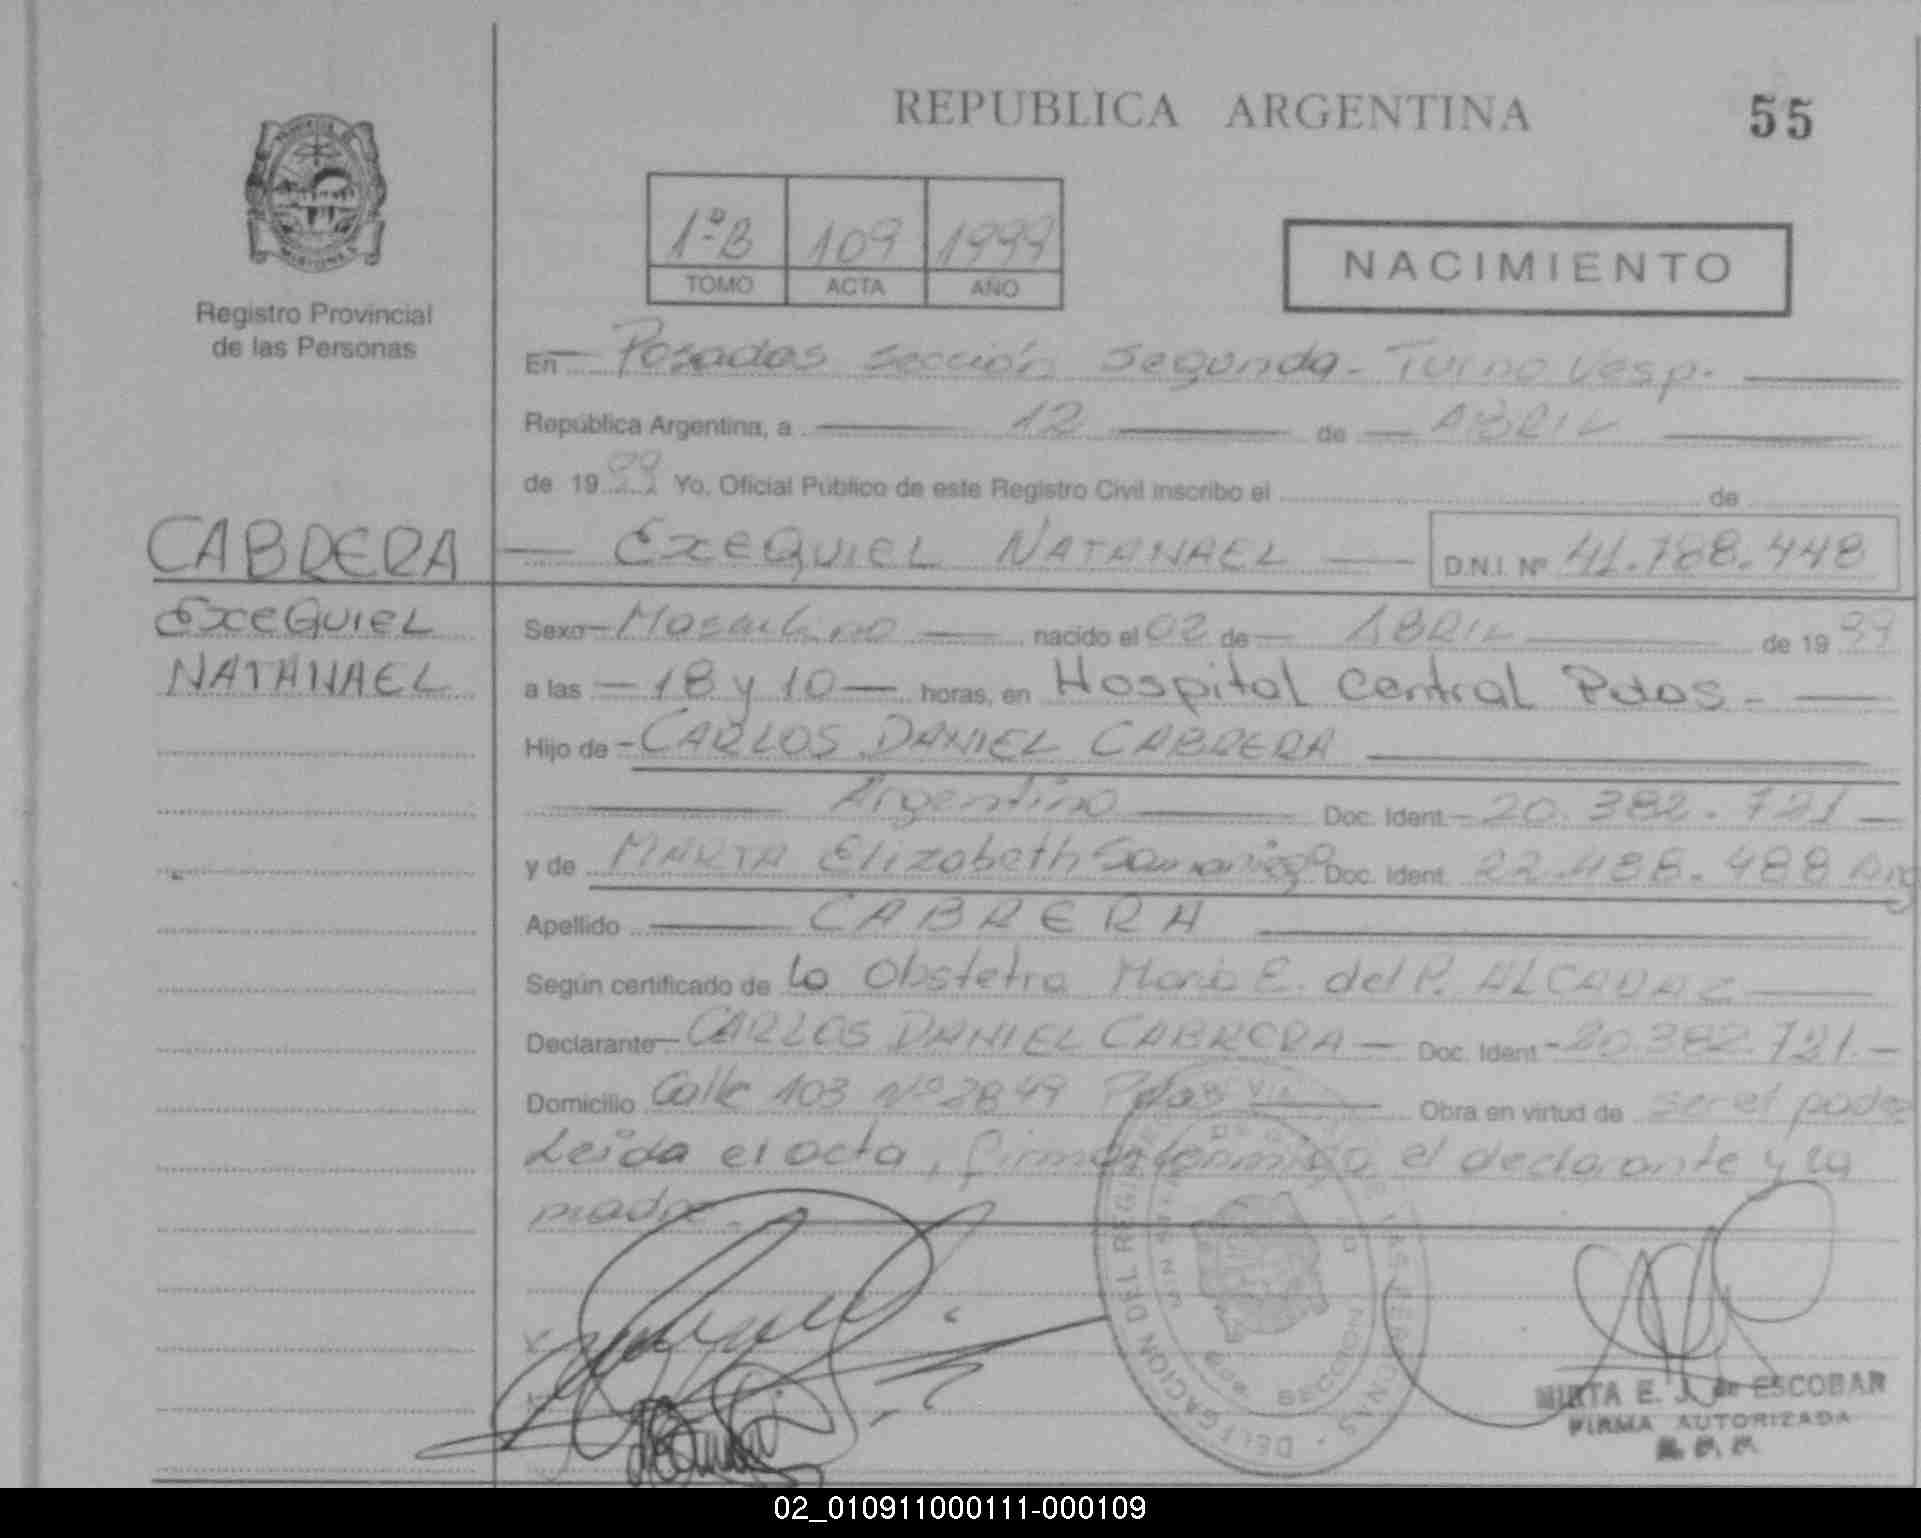 REPUBLICA ARGENTINA
55
1ºB 109 1999
TOMO ACTA AÑO
NACIMIENTO
Registro Provincial
de las Personas
En Posadas sección segunda - Turno Vesp.
República Argentina, a 12 de ABRIL
de 1999 Yo, Oficial Público de este Registro Civil inscribo el de
CABRERA EXEQUIEL NATANAEL D.N.I. Nº 41.788.448
EXEQUIEL
NATANAEL
Sexo Masculino nacido el 02 de ABRIL de 1999
a las 18 y 10 horas, en Hospital Central Pdas.
Hijo de CARLOS DANIEL CABRERA
Argentino Doc. Ident. 20.382.721
y de MARTA Elizabeth Samaniego Doc. Ident. 22.488.488 Arg
Apellido CABRERA
Según certificado de la Obstetra María E. del P.
Declarante CARLOS DANIEL CABRERA Doc. Ident 20.382.721.
Domicilio Calle 103 Nº 3849 Pdas Obra en virtud de ser el padre
Leída el acta, firman conmigo el declarante y la
madre.
DELEGACION DEL REGISTRO
SECCION
MIRTA E. J. de ESCOBAR
FIRMA AUTORIZADA
R. P. P.
02_010911000111-000109